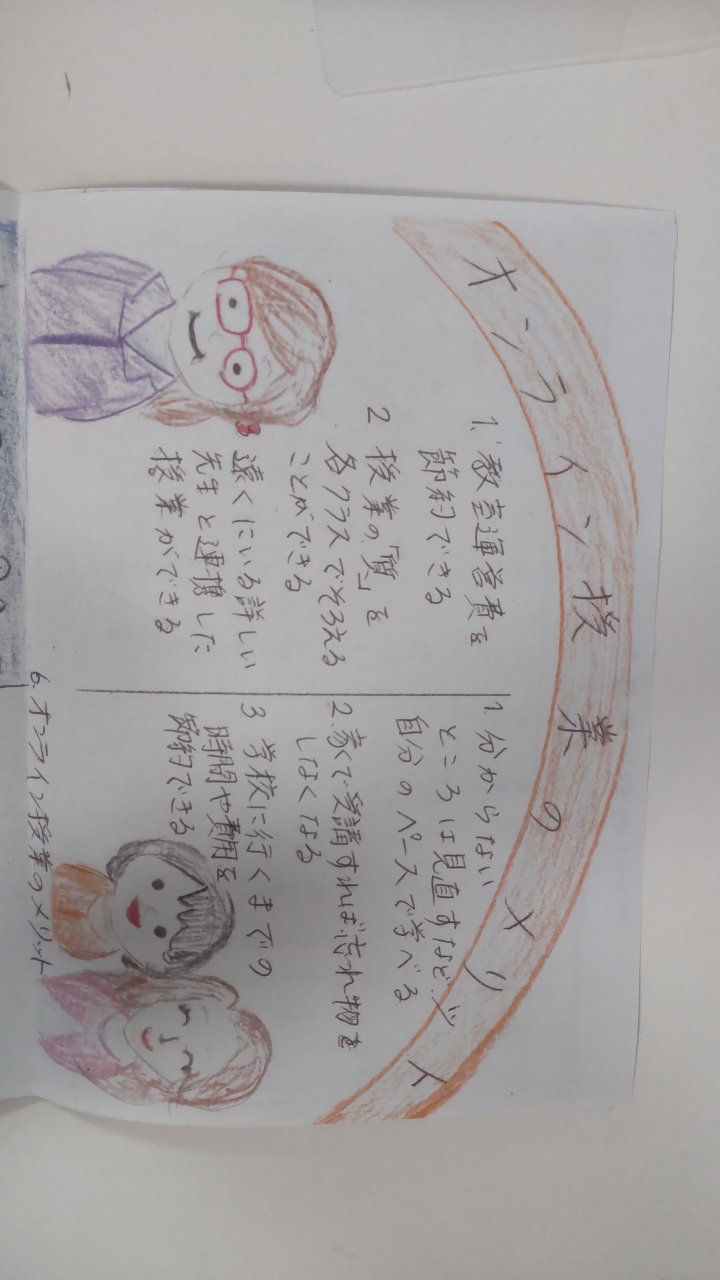 オンライン授業のメリット
1. 教室運営費を
節約できる
2 授業の「質」を
各クラスでそろえる
ことができる
3 遠くにいる詳しい
先生と連携した
授業ができる
1. 分からない
ところは見直すなど、
自分のペースで学べる
2. 家で受講すれば忘れ物を
しなくなる
3 学校に行くまでの
時間や費用を
節約できる
6. オンライン授業のメリット